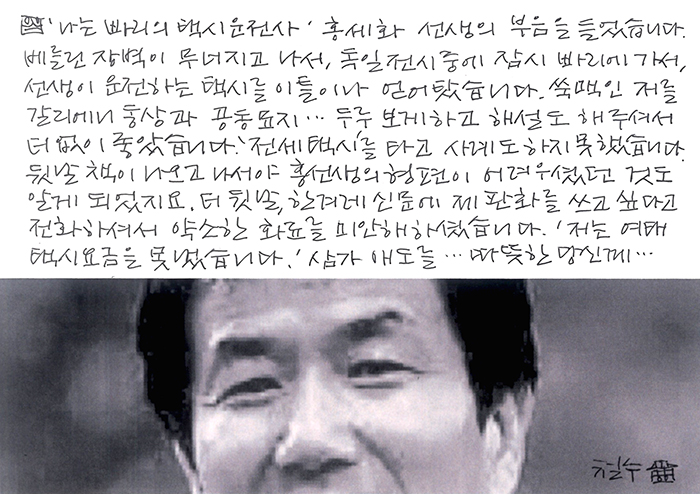 '나는 빠리의 택시운전사' 홍세화 선생의 부음을 들었습니다.
베를린 장벽이 무너지고 나서, 독일전시중에 잠시 빠리에 가서,
선생이 운전하는 택시를 이틀이나 얻어탔습니다. 쑥맥인 저를
갈리에니 동상과 공동묘지… 두루 보게하고 해설도 해주셔서
더없이 좋았습니다. '전세택시'를 타고 사례도 하지 못했습니다.
뒷날 책이 나오고 나서야 홍선생의 형편이 어려우셨던 것도
알게 되었지요. 더 뒷날, 한겨레신문에 제 판화를 쓰고 싶다고
전화하셔서 약소한 화료를 미안해하셨습니다. '저는 여태
택시요금을 못 냈습니다.' 삼가 애도를… 따뜻한 당신께…
철수